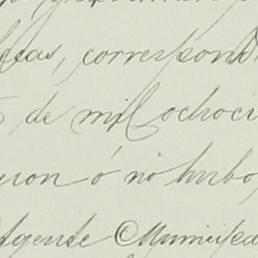 correspond
de mil ochoci
ó no hubo,
Agente Municipa